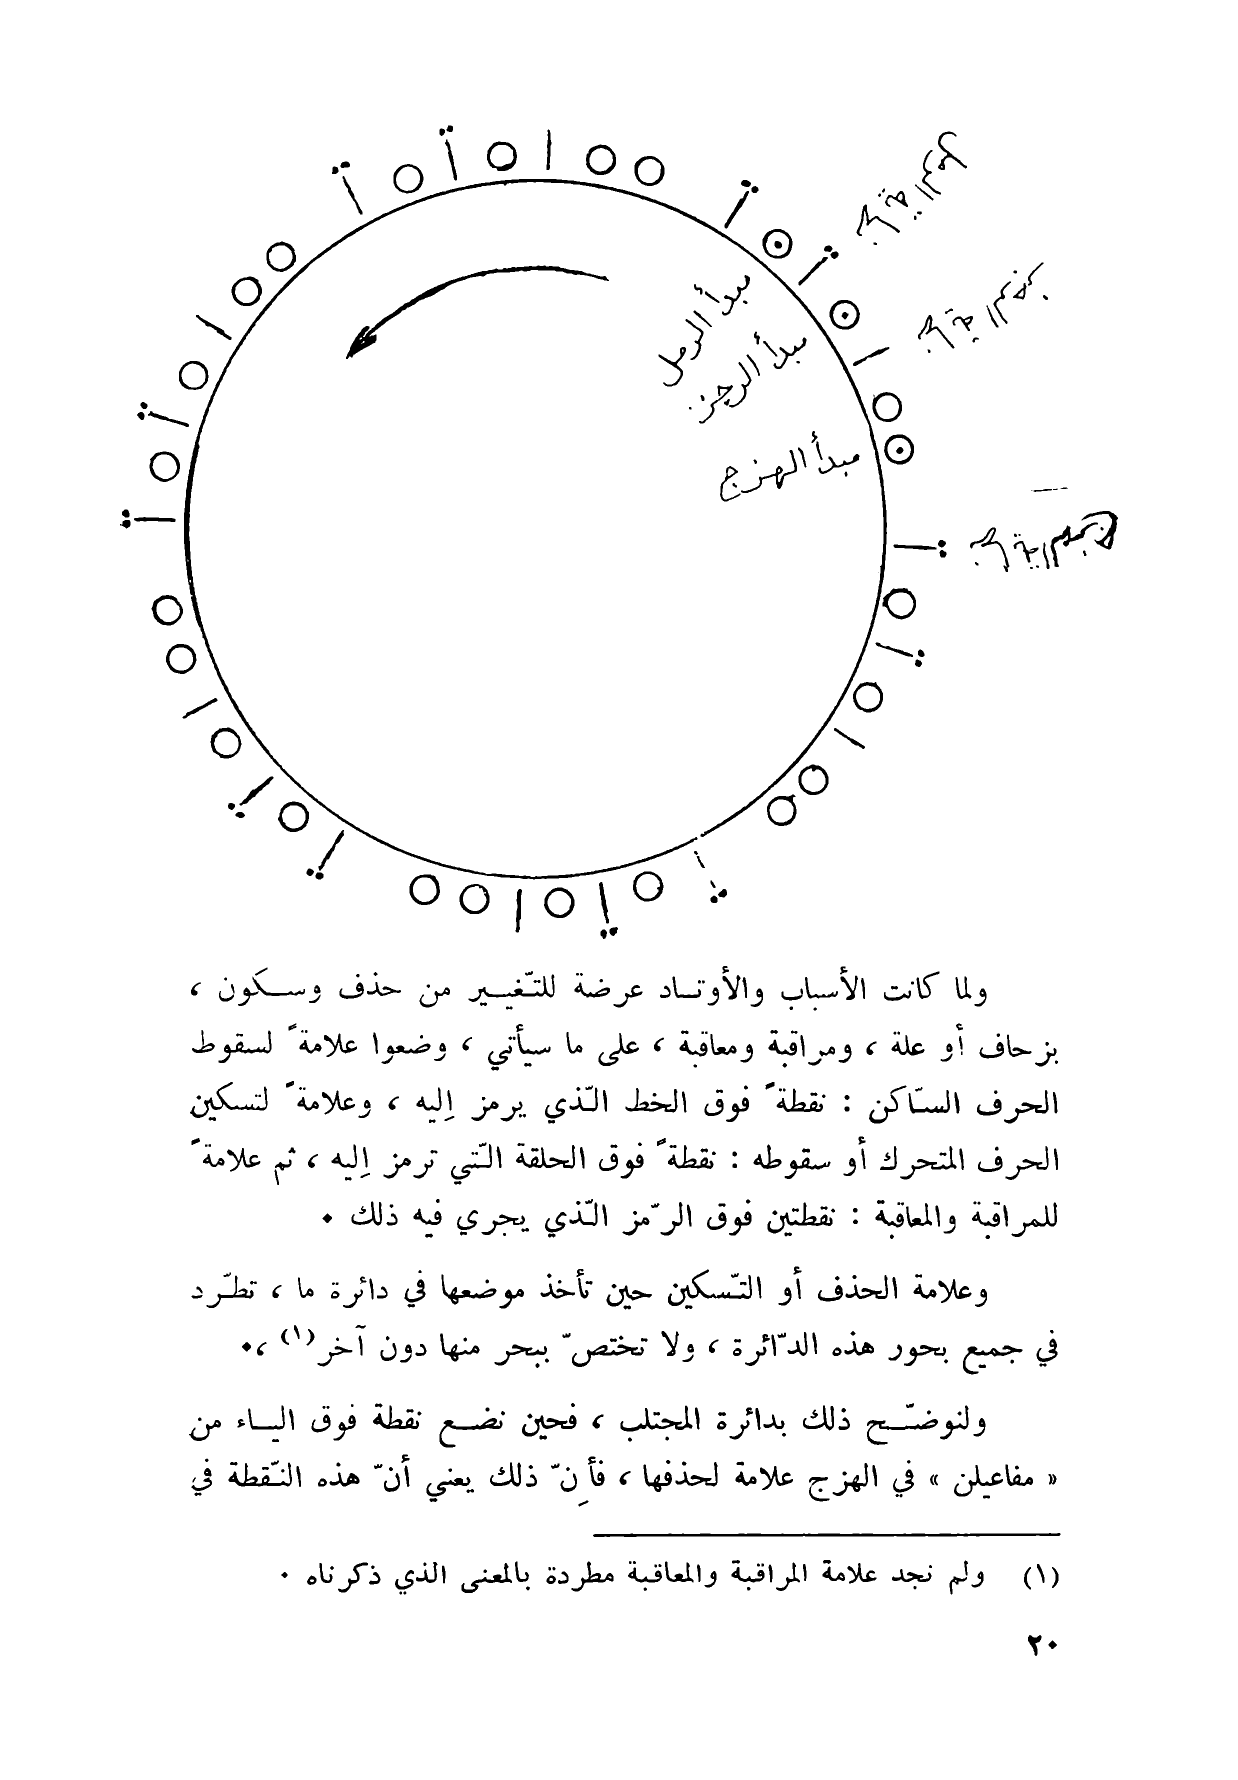 مبدأ الرمل
مبدأ الرجز
مبدأ الهزج
ولما كانت الأسباب والأوتـاد عرضة للتّغيـير من حذف وسـكون ،
بزحاف أو علة ، ومراقبة ومعاقبة ، على ما سيأتي ، وضعوا علامة ً لسقوط
الحرف السّاكن : نقطة ً فوق الخط الّذي يرمز إليه ، وعلامة ً لتسكين
الحرف المتحرك أو سقوطه : نقطة ً فوق الحلقة الّتي ترمز إليه ، ثم علامة ً
للمراقبة والمعاقبة : نقطتين فوق الرّمز الّذي يجري فيه ذلك .
وعلامة الحذف أو التّسكين حين تأخذ موضعها في دائرة ما ، تطّرد
في جميع بحور هذه الدّائرة ، ولا تختصّ ببحر منها دون آخر (١) ،.
ولنوضّـح ذلك بدائرة المجتلب ، فحين نضـع نقطة فوق اليـاء من
« مفاعيلن » في الهزج علامة لحذفها ، فأِنّ ذلك يعني أنّ هذه النّقطة في
(١) ولم نجد علامة المراقبة والمعاقبة مطردة بالمعنى الذي ذكرناه .
٢٠